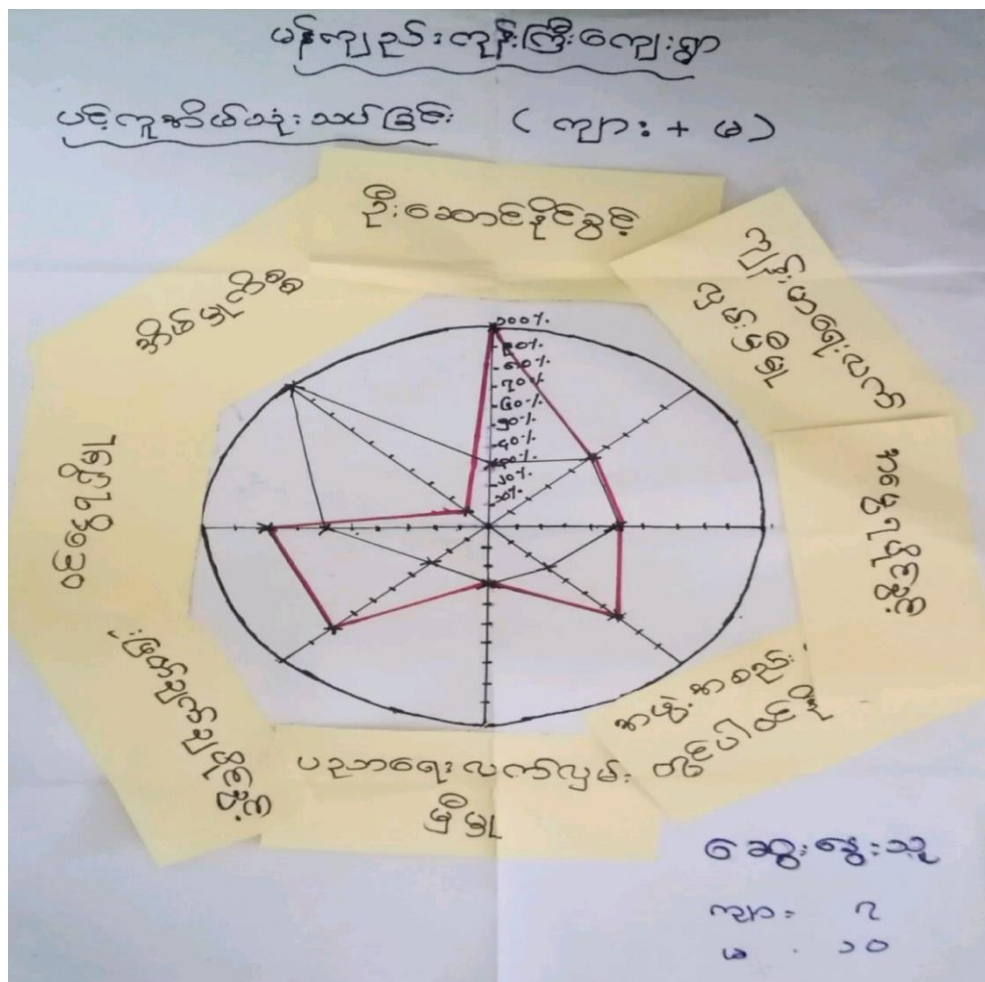 မန်ကျည်းကုန်းကြီးကျေးရွာ
ပင့်ကူအိမ်သုံးသပ်ခြင်း ( ကျား + မ )
ဦးဆောင်နိုင်ခွင့်
ကျန်းမာရေးလက်
လှမ်းမှီမှု
အမွေရပိုင်ခွင့်
အဖွဲ့အစည်း
တွင်ပါဝင်မှု
ပညာရေးလက်လှမ်း
မှီမှု
ဆုံးဖြတ်ချက်ချပိုင်ခွင့်
ဝင်ငွေရရှိမှု
အိမ်မှုကိစ္စ
၁၀၀%
၉၀%
၈၀%
၇၀%
၆၀%
၅၀%
၄၀%
၃၀%
၂၀%
၁၀%
ဆွေးနွေးသူ
ကျား ၇
မ ၁၀